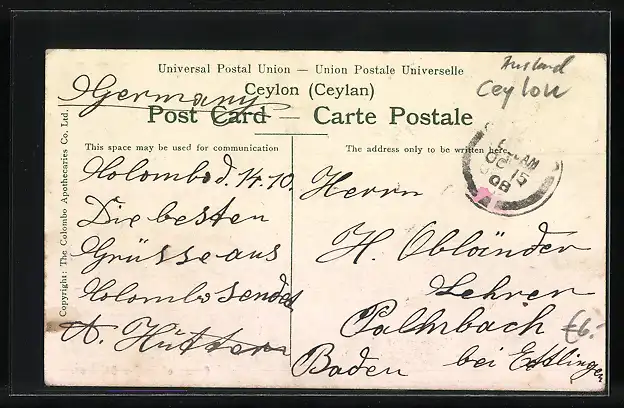 Universal Postal Union — Union Postale Universelle
Ausland
Ceylon
Ceylon (Ceylan)
Germany
Post Card — Carte Postale
This space may be used for communication
The address only to be written here
AM
OC 15
08
Colombo d. 14.10.
Die besten
Grüsse aus
Colombo sendet
A. Hütter
Herrn
H. Obländer
Lehrer
Palmbach
bei Ettlingen
Baden
€6.-
Copyright: The Colombo Apothecaries Co. Ltd.